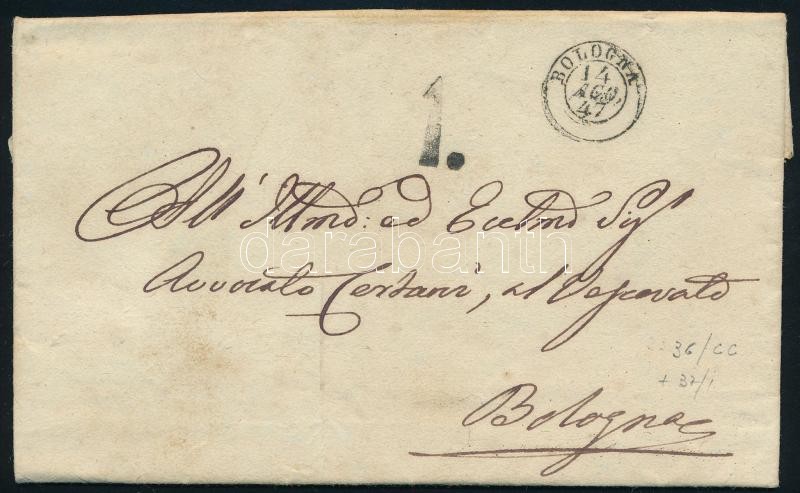 BOLOGNA
14
AGO.
47
1.
All' Illmo: ed Eccelmo Sig.r
darabanth
Avvocato Certani, al Vescovato
36/CC
+ 37/1
Bologna